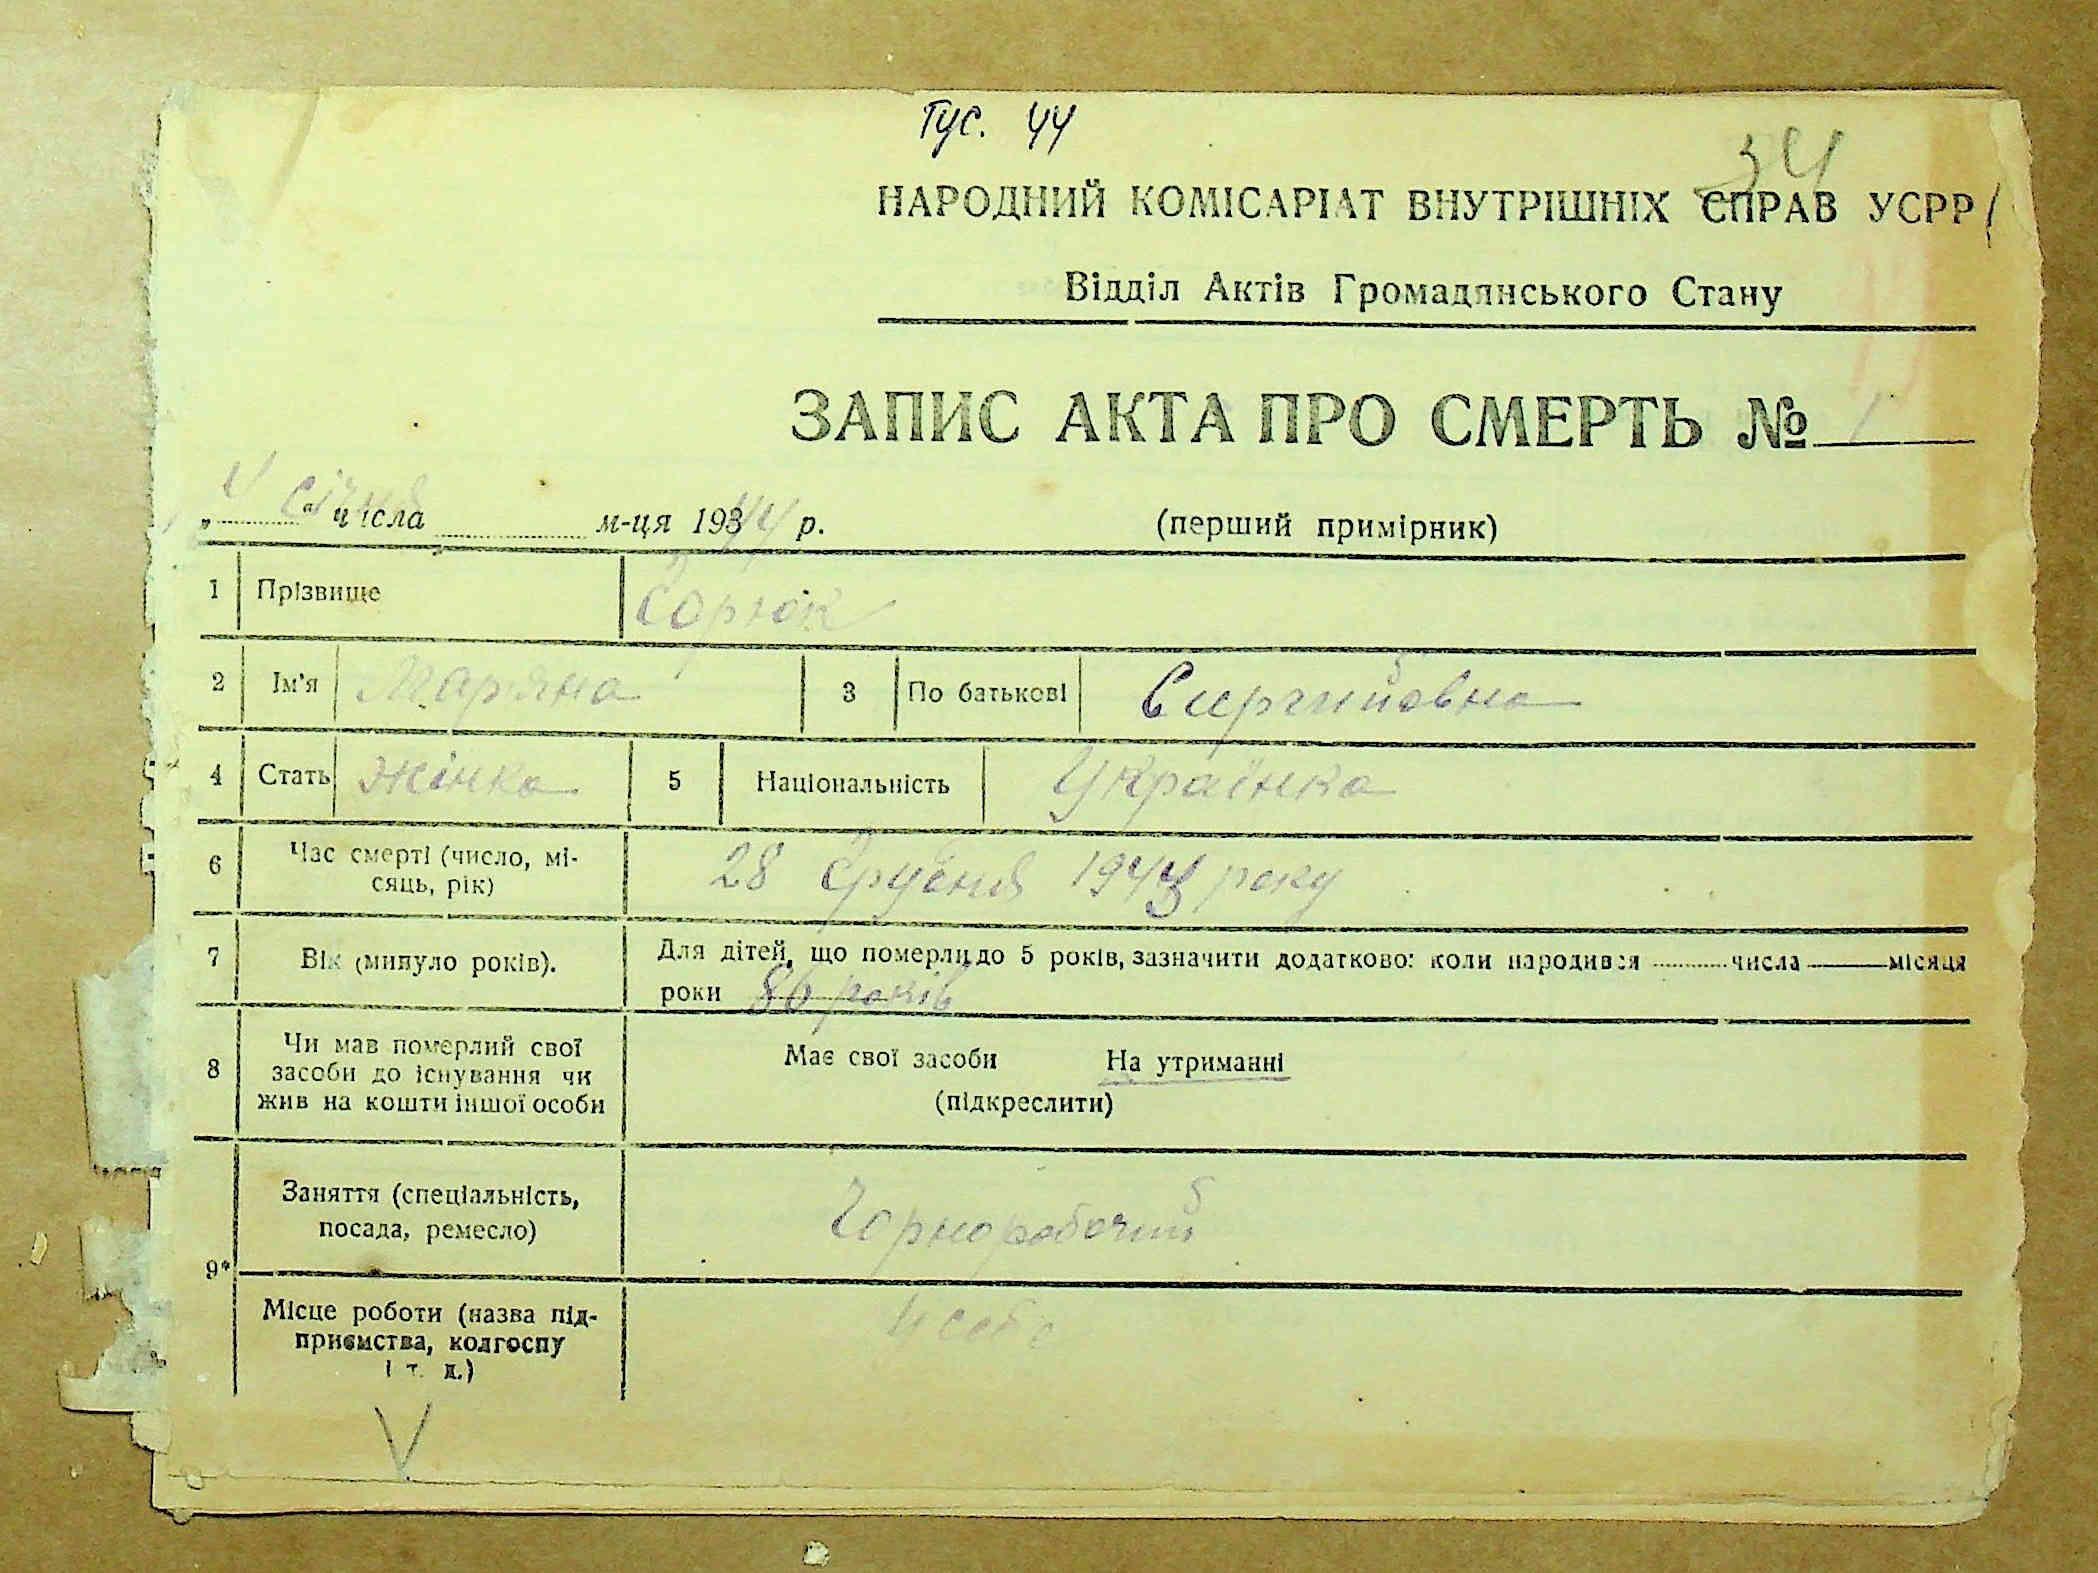 Гус. 44
34
НАРОДНИЙ КОМІСАРІАТ ВНУТРІШНІХ СПРАВ УСРР
Відділ Актів Громадянського Стану
ЗАПИС АКТА ПРО СМЕРТЬ № 1
„4“ січня числа м-ця 1944 р. (перший примірник)
1 Прізвище Сорюк
2 Ім'я Мар'яна 3 По батькові Сиргийовна
4 Стать Жінка 5 Національність Українка
6 Час смерті (число, мі-
сяць, рік) 28 Грудня 1943 року
7 Вік (минуло років). Для дітей, що померли до 5 років, зазначити додатково: коли народився числа місяця
роки 86 років
8 Чи мав померлий свої
засоби до існування чи
жив на кошти іншої особи
Має свої засоби На утриманні
(підкреслити)
9* Заняття (спеціальність,
посада, ремесло) Чорноробочий
Місце роботи (назва під-
приємства, колгоспу
і т. д.)